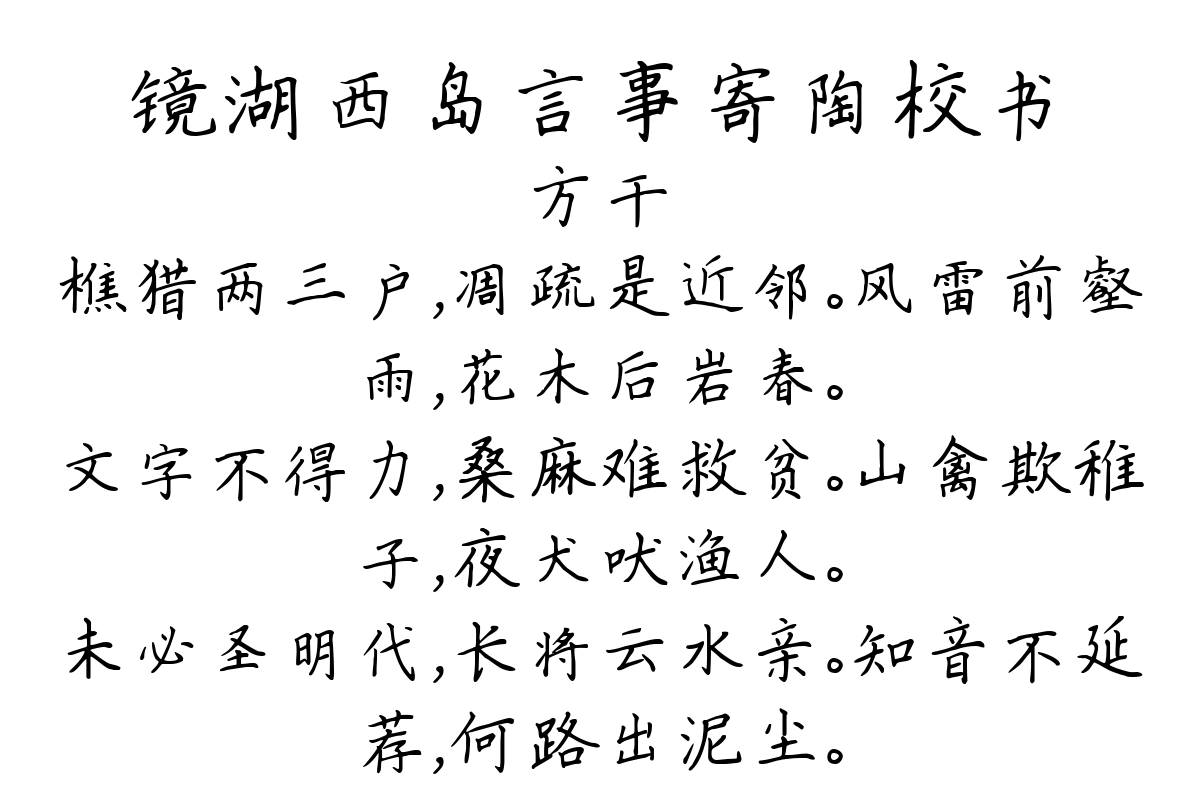 镜湖西岛言事寄陶校书
方干
樵猎两三户,凋疏是近邻。风雷前壑
雨,花木后岩春。
文字不得力,桑麻难救贫。山禽欺稚
子,夜犬吠渔人。
未必圣明代,长将云水亲。知音不延
荐,何路出泥尘。